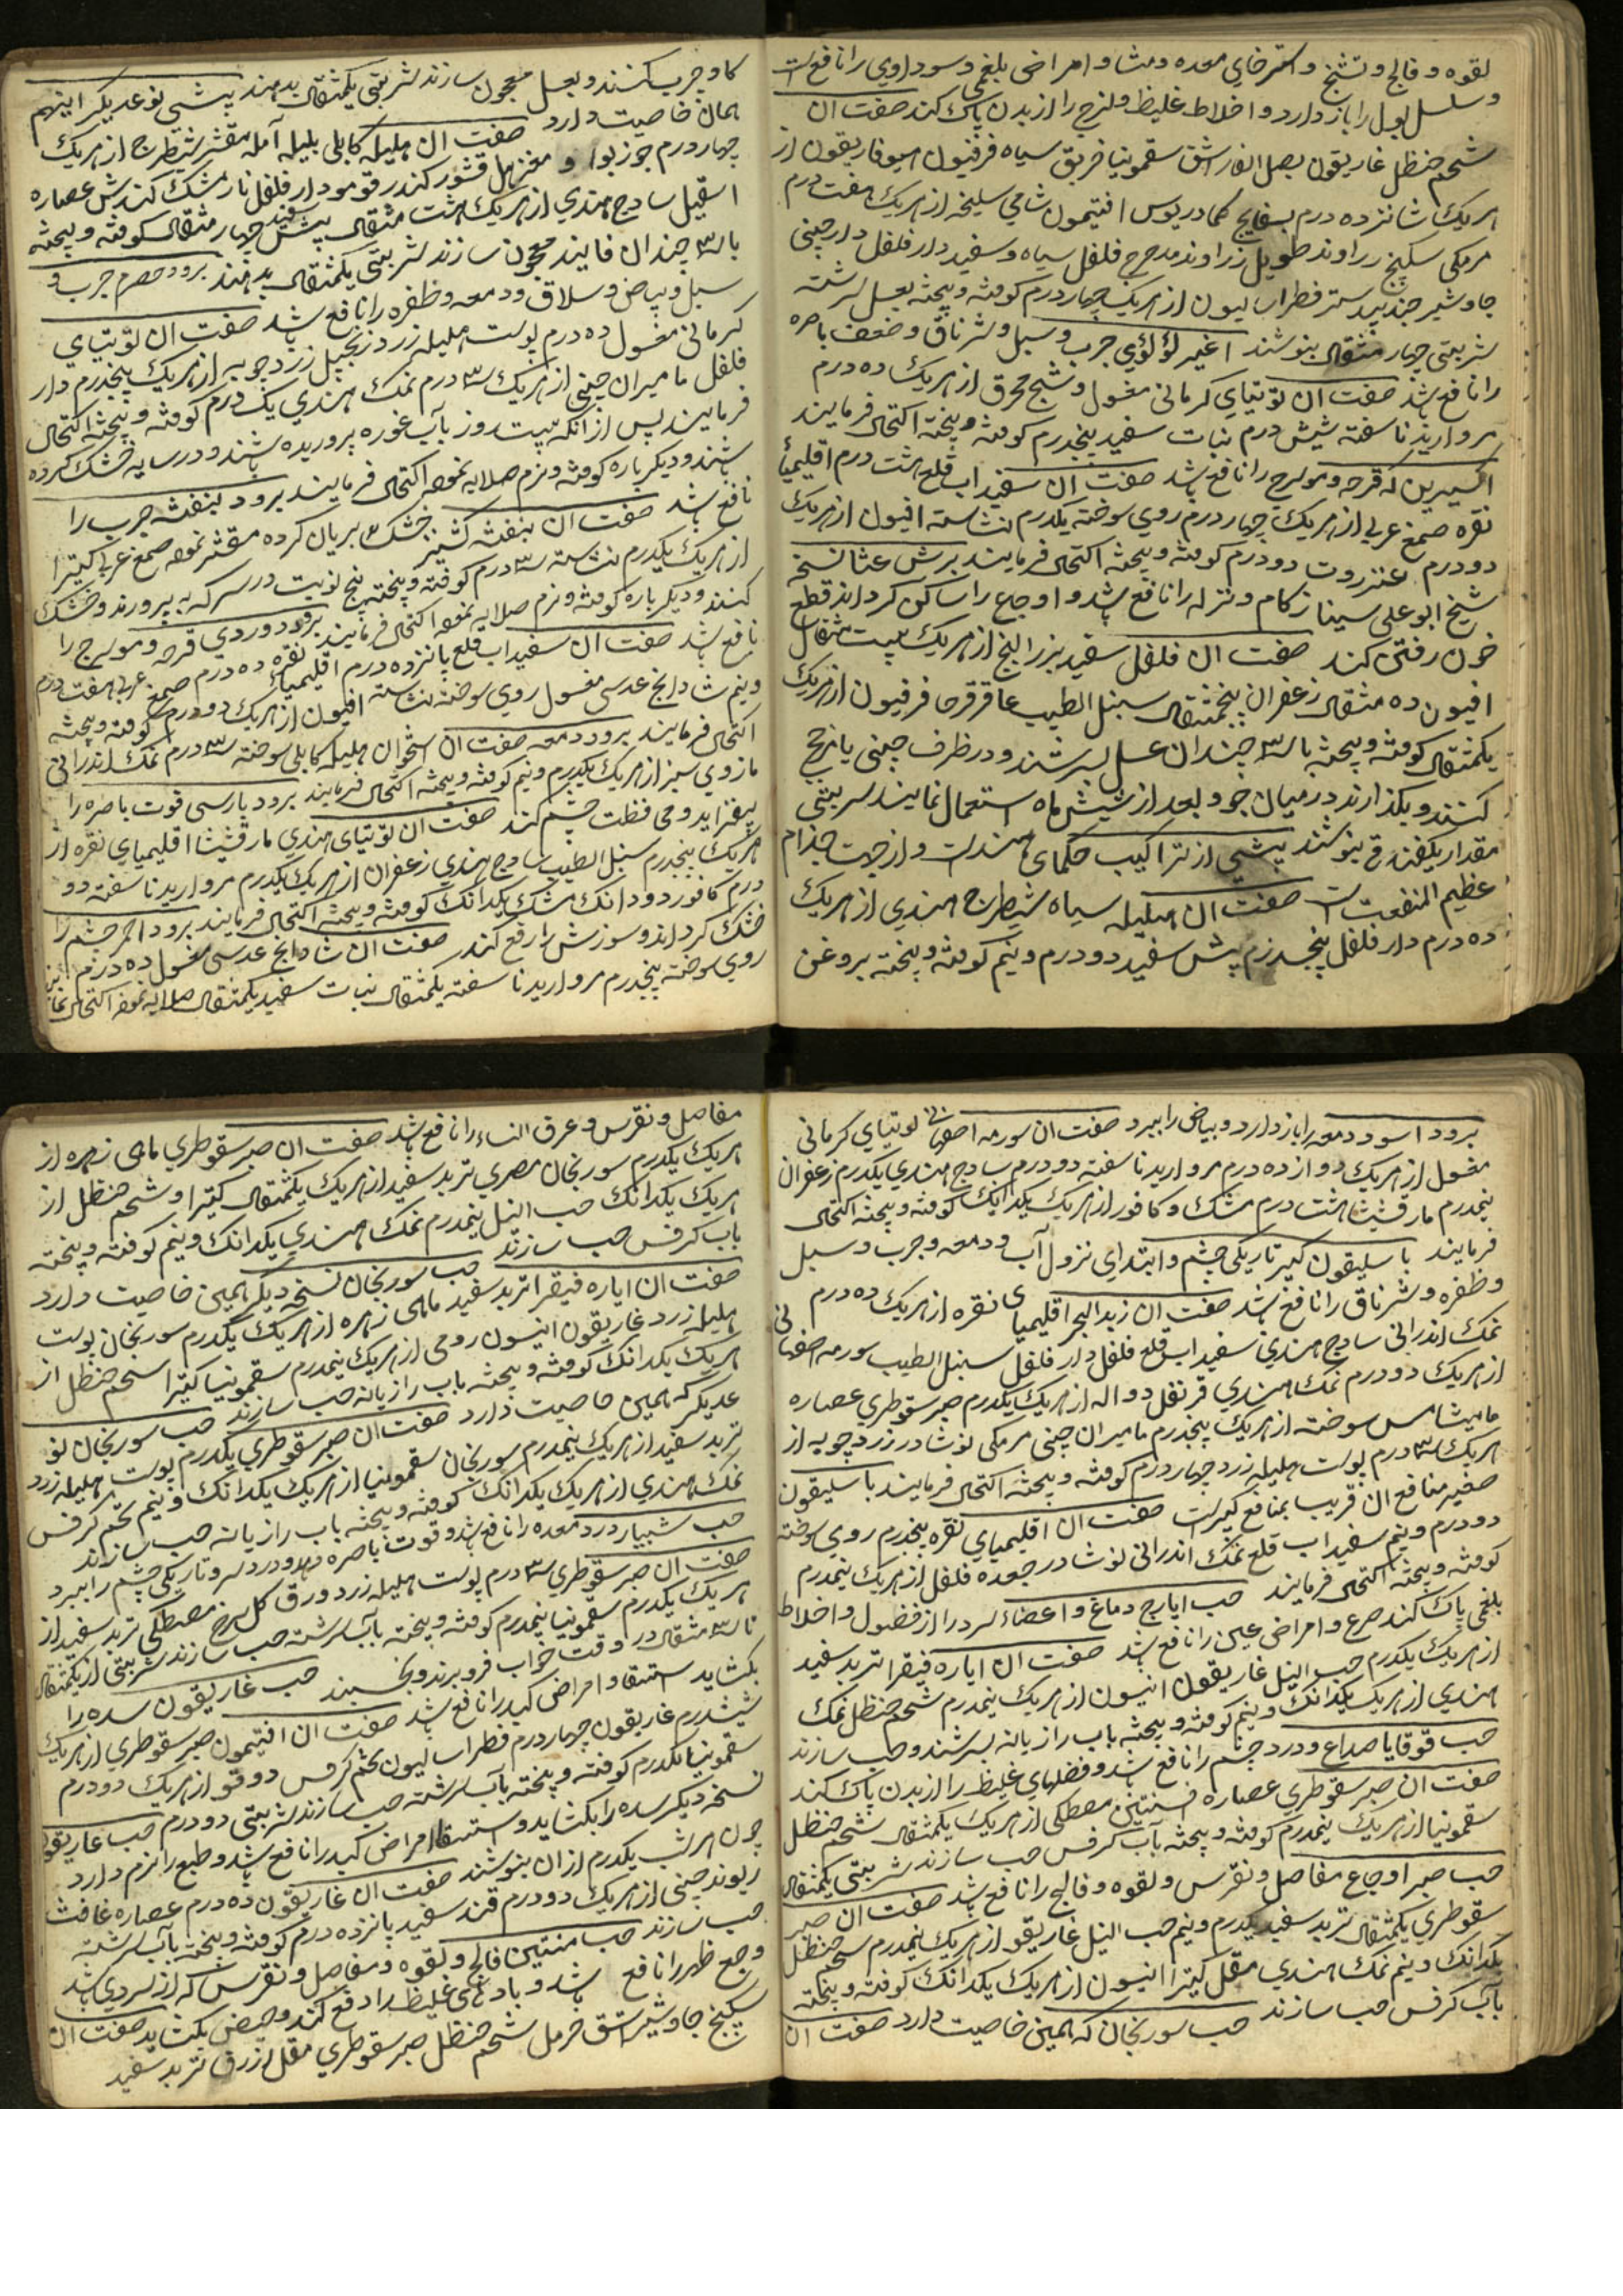 لقوه و فالج و تشنج و استرخای معده و مثانه و امراض بلغمی و سوداوی را نافع است
و سلسل بول را باز دارد و اخلاط غلیظ و لزج را از بدن پاک کند صفت ان
شحم حنظل غاریقون بصل الفار اشق سقمونیا خربق سیاه فرفیون اسوفاریقون از
هریک شانزده درم بسفایج کمادریوس افتیمون شامی سلیخه از هریک هفت درم
مرمکی سکبینج زراوند طویل زراوند مدحرج فلفل سیاه و سفید دار فلفل دارچینی
جاوشیر جندبیدستر فطراسالیون از هریک چهار درم کوفته و بیخته بعسل سرشته
شربتی چهار مثقال بنوشند اغبر لؤلؤی جرب و سبل و شرناق و ضعف باصره
را نافع باشد صفت ان توتیای کرمانی مغسول و شنج محرق از هریک ده درم
مروارید ناسفته شیش درم نبات سفید پنجدرم کوفته و بیخته اکتحال فرمایند
اکسیرین که قرحه و مورسرج را نافع باشد صفت ان سفیداب قلع هشت درم اقلیمیای
نقره صمغ عربی از هریک چهار درم روی سوخته یکدرم نشاسته افیون از هریک
دو درم عنزروت دو درم کوفته و بیخته اکتحال فرمایند برشعثا نسخه
شیخ ابو علی سینا زکام و نزله را نافع باشد و اوجاع را ساکن کرداند قطع
خون رفتن کند صفت ان فلفل سفید بزر البنج از هریک بیست مثقال
افیون ده مثقال زعفران پنجمثقال سنبل الطیب عاقرقرحا فرفیون از هریک
یکمثقال کوفته و بیخته با سه چندان عسل بسرشند و در ظرف چینی یا زجاج
کنند و بکذارند در میان جو و بعد از شیش ماه استعمال نمایند شربتی
مقدار یکفندق بنوشند بیشی از تراکیب حکمای هندست و از جهت جذام
عظیم المنفعت است صفت ان هلیله سیاه شیطرج هندی از هریک
ده درم دار فلفل پنجدرم بیش سفید دو درم و نیم کوفته و بیخته بروغن
کاو چرب کنند و بعسل معجون سازند شربتی یکمثقال بدهند بیشی نوعدیکر اینهم
همان خاصیت دارد صفت ان هلیله کابلی بلیله آمله مقشر شیطرج از هریک
چهار درم جوزبوا و مغز هل قشور کندر قومو دار فلفل نارمشک کندش عصاره
اسقیل سادج هندی از هریک هشت مثقال بیش سفید چهار مثقال کوفته و بیخته
با سه چندان فانید معجون سازند شربتی یکمثقال بدهند برود حصرم جرب و
سبل و بیاض و سلاق و دمعه و ظفره را نافع باشد صفت ان توتیای
کرمانی مغسول ده درم پوست هلیله زرد زنجبیل زردچوبه از هریک پنجدرم دار
فلفل مامیران چینی از هریک سه درم نمک هندی یک درم کوفته و بیخته اکتحال
فرمایند پس از انکه بیست روز بآب غوره پرورده باشند و در سایه خشک کرده
باشند و دیکر باره کوفته و نرم صلایه نموده اکتحال فرمایند برود بنفشه جرب را
نافع باشد صفت ان بنفشه کشنیز خشک بریان کرده مقشر نموده صمغ عربی کتیرا
از هریک یکدرم نشاسته سه درم کوفته و بیخته پنج نوبت در سرکه بپرورند و خشک
کنند و دیکر باره کوفته و نرم صلایه نموده اکتحال فرمایند برود وردی قرحه و مورسرج را
نافع باشد صفت ان سفیداب قلع پانزده درم اقلیمیای نقره ده درم صمغ عربی هفت درم
و نیم شادانج عدسی مغسول روی سوخته نشاسته افیون از هریک دو درم کوفته و بیخته
اکتحال فرمایند برود دمعه صفت ان استخوان هلیله کابلی سوخته سه درم نمک اندرانی
مازوی سبز از هریک یکدرم و نیم کوفته و بیخته اکتحال فرمایند برود پارسی قوت باصره را
بیفزاید و محافظت چشم کند صفت ان توتیای هندی مارقشیثا اقلیمیای نقره از
هریک پنجدرم سنبل الطیب سادج هندی زعفران از هریک یکدرم مروارید ناسفته دو
درم کافور دو دانک مشک یکدانک کوفته و بیخته اکتحال فرمایند برود احمر چشم را
خشک کرداند و سوزش را رفع کند صفت ان شادانج عدسی مغسول ده درم
روی سوخته پنجدرم مروارید ناسفته یکمثقال نبات سفید یکمثقال صلایه نموده اکتحال نمایند
برود اسود دمعه را باز دارد و بیاض را ببرد صفت ان سورمه اصفهانی توتیای کرمانی
مغسول از هریک دوازده درم مروارید ناسفته دو درم سادج هندی یکدرم زعفران
نیمدرم مارقشیثا هشت درم مشک و کافور از هریک یکدانک کوفته و بیخته اکتحال
فرمایند باسلیقون کبیر تاریکی چشم و ابتدای نزول آب و دمعه و جرب و سبل
و ظفره و شرناق را نافع باشد صفت ان زبد البحر اقلیمیای نقره از هریک ده درم
نمک اندرانی سادج هندی سفیداب قلع فلفل دار فلفل سنبل الطیب سورمه اصفهانی
از هریک دو درم نمک هندی قرنفل دواله از هریک یکدرم صبر سقوطری عصاره
مامیشا مس سوخته از هریک پنجدرم مامیران چینی مرمکی نوشادر زردچوبه از
هریک سه درم پوست هلیله زرد چهار درم کوفته و بیخته اکتحال فرمایند باسلیقون
صغیر منافع ان قریب بمنافع کبیرست صفت ان اقلیمیای نقره پنجدرم روی سوخته
دو درم و نیم سفیداب قلع نمک اندرانی نوشادر جعده فلفل از هریک نیمدرم
کوفته و بیخته اکتحال فرمایند حب ایارج دماغ و اعضاء سر را از فضول و اخلاط
بلغمی پاک کند صرع و امراض عین را نافع باشد صفت ان ایاره فیقرا تربد سفید
از هریک یکدرم حب النیل غاریقون انیسون از هریک نیمدرم شحم حنظل نمک
هندی از هریک یکدانک و نیم کوفته و بیخته باب رازیانه بسرشند و حب سازند
حب قوقایا صداع و درد چشم را نافع باشد و فضلهای غلیظ را از بدن پاک کند
صفت ان صبر سقوطری عصاره افسنتین مصطکی از هریک یکمثقال شحم حنظل
سقمونیا از هریک نیمدرم کوفته و بیخته بآب کرفس حب سازند شربتی یکمثقال
حب صبر اوجاع مفاصل و نقرس و لقوه و فالج را نافع باشد صفت ان صبر
سقوطری یکمثقال تربد سفید یکدرم و نیم حب النیل غاریقو از هریک نیمدرم شحم حنظل
یکدانک و نیم نمک هندی مقل کتیرا انیسون از هریک یکدانک کوفته و بیخته
بآب کرفس حب سازند حب سورنجان که همین خاصیت دارد صفت ان
مفاصل و نقرس و عرق النساء را نافع باشد صفت ان صبر سقوطری ماهی زهره از
هریک یکدرم سورنجان مصری تربد سفید از هریک یکمثقال کتیرا و شحم حنظل از
هریک یکدانک حب النیل نیمدرم نمک هندی یکدانک و نیم کوفته و بیخته
باب کرفس حب سازند حب سورنجان نسخه دیکر همین خاصیت دارد
صفت ان ایاره فیقرا تربد سفید ماهی زهره از هریک یکدرم سورنجان پوست
هلیله زرد غاریقون انیسون رومی از هریک نیمدرم سقمونیا کتیرا شحم حنظل از
هریک یکدانک کوفته و بیخته باب رازیانه حب سازند حب سورنجان نو
عدیکر که همین خاصیت دارد صفت ان صبر سقوطری یکدرم پوست هلیله زرد
تربد سفید از هریک نیمدرم سورنجان سقمونیا از هریک یکدانک و نیم تخم کرفس
نمک هندی از هریک یکدانک کوفته و بیخته باب رازیانه حب سازند
حب شبیار درد معده را نافع باشد و قوت باصره دهد و درد سر و تاریکی چشم را ببرد
صفت ان صبر سقوطری سه درم پوست هلیله زرد ورق کل سرخ مصطکی تربد سفید از
هریک یکدرم سقمونیا نیمدرم کوفته و بیخته بآب سرشته حب سازند شربتی از یکمثقال
تا سه مثقال در وقت خواب فرو برند و بخسبند حب غاریقون سده را
بکشاید استسقا و امراض کبد را نافع باشد صفت ان افتیمون صبر سقوطری از هریک
شیشدرم غاریقون چهار درم فطراسالیون تخم کرفس دوقو از هریک دو درم
سقمونیا یکدرم کوفته و بیخته بآب سرشته حب سازند شربتی دو درم حب غاریقون
نسخه دیکر سده را بکشاید و استسقا و امراض کبد را نافع باشد و طبع را نرم دارد
چون هر شب یکدرم از ان بنوشند صفت ان غاریقون ده درم عصاره غافث
ریوند چینی از هریک دو درم قند سفید پانزده درم کوفته و بیخته بآب سرشته
حب سازند حب منتین فالج و لقوه و مفاصل و نقرس که از سردی باشد
و وجع ظهر را نافع باشد و بادهای غلیظ را دفع کند و حیض بکشاید صفت ان
سکبینج جاوشیر اشق حرمل شحم حنظل صبر سقوطری مقل ازرق تربد سفید